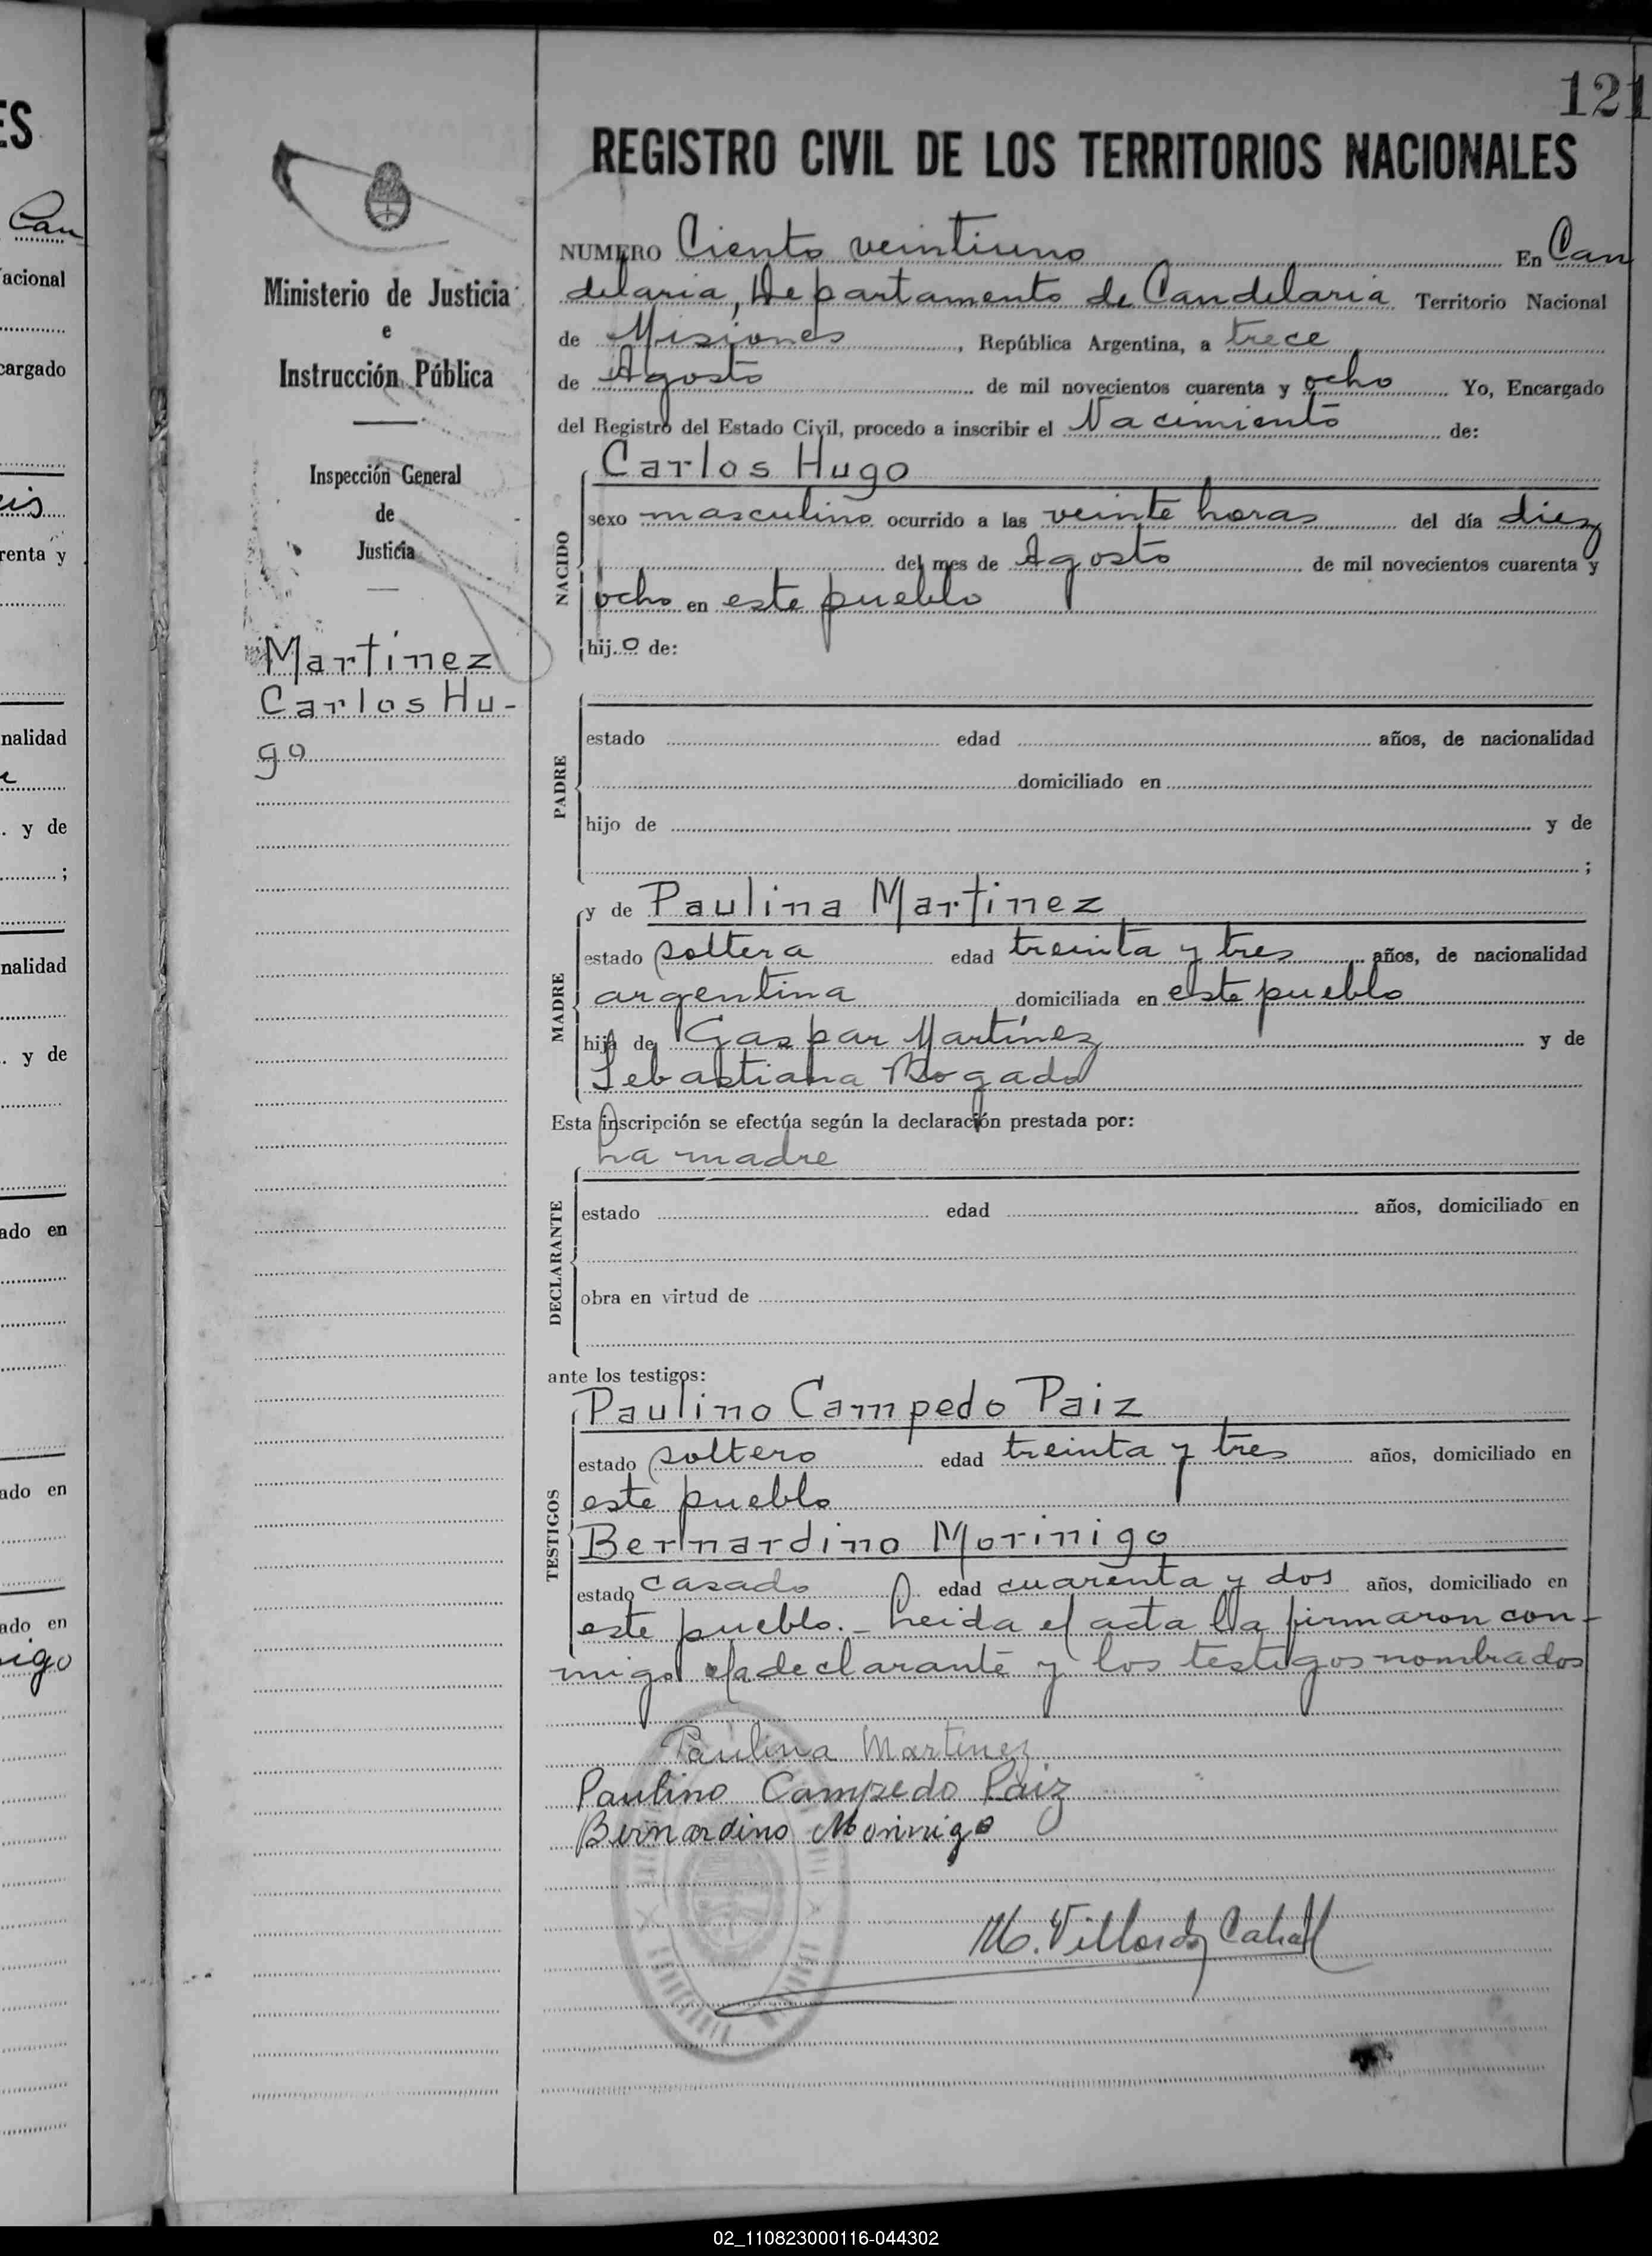 121
REGISTRO CIVIL DE LOS TERRITORIOS NACIONALES
Ministerio de Justicia
e
Instrucción Pública
Inspección General
de
Justicia
Martínez
Carlos Hu-
go
NUMERO Ciento veintiuno En Can
delaria, Departamento de Candelaria Territorio Nacional
de Misiones, República Argentina, a trece
de Agosto de mil novecientos cuarenta y ocho Yo, Encargado
del Registro del Estado Civil, procedo a inscribir el Nacimiento de:
NACIDO
Carlos Hugo
sexo masculino ocurrido a las veinte horas del día diez
del mes de Agosto de mil novecientos cuarenta y
ocho en este pueblo
hij.o de:
PADRE
estado edad años, de nacionalidad
domiciliado en
hijo de y de
;
MADRE
y de Paulina Martinez
estado soltera edad treinta y tres años, de nacionalidad
argentina domiciliada en este pueblo
hija de Gaspar Martínez y de
Sebastiana Bogado
Esta inscripción se efectúa según la declaración prestada por:
La madre
DECLARANTE
estado edad años, domiciliado en
obra en virtud de
ante los testigos:
TESTIGOS
Paulino Campedo Paiz
estado soltero edad treinta y tres años, domiciliado en
este pueblo
Bernardino Morinigo
estado casado edad cuarenta y dos años, domiciliado en
este pueblo._ Leida el acta la firmaron con-
migo la declarante y los testigos nombrados
Paulina Martinez
Paulino Campedo Paiz
Bernardino Morinigo
M. Cabral
ES
Can
acional
cargado
eis
renta y
nalidad
. y de
;
nalidad
. y de
ado en
ado en
ado en
igo
02_110823000116-044302